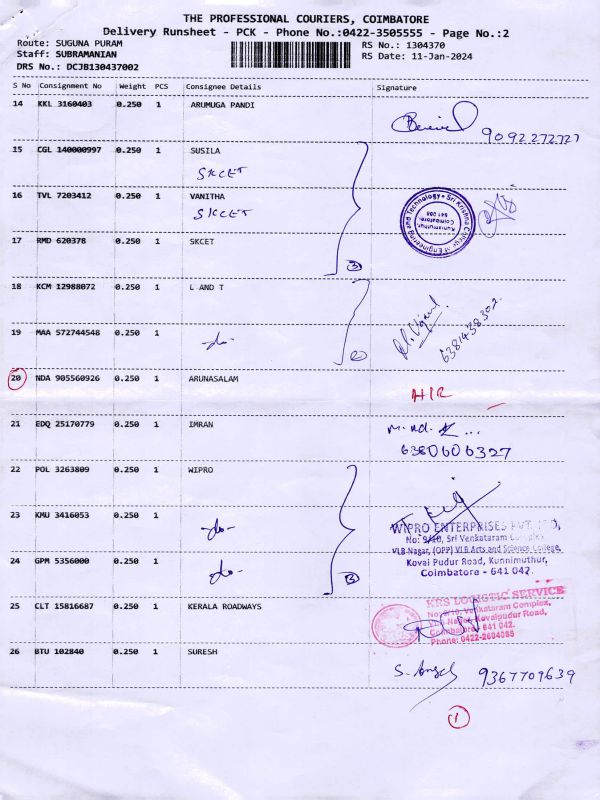 THE PROFESSIONAL COURIERS, COIMBATORE
Delivery Runsheet - PCK - Phone No.:0422-3505555 - Page No.:2
Route: SUGUNA PURAM RS No.: 1304370
Staff: SUBRAMANIAN RS Date: 11-Jan-2024
DRS No.: DCJB130437002
S No Consignment No Weight PCS Consignee Details Signature
14 KKL 3160403 0.250 1 ARUMUGA PANDI
9092272727
15 CGL 140000997 0.250 1 SUSILA
SKCET
16 TVL 7203412 0.250 1 VANITHA
SKCET
Sri Krishna College of Engineering and Technology
Kuniamuthur
Coimbatore
641 008
17 RMD 620378 0.250 1 SKCET
3
18 KCM 12988072 0.250 1 L AND T
6381438302
19 MAA 572744548 0.250 1 -do-
2
20 NDA 905560926 0.250 1 ARUNASALAM
H/R
21 EDQ 25170779 0.250 1 IMRAN
6380606327
22 POL 3263809 0.250 1 WIPRO
23 KMU 3416053 0.250 1 -do-
WIPRO ENTERPRISES PVT. LTD,
No: 9/10, Sri Venkataram Complex
VLB Nagar, (OPP) VLB Arts and Science College,
Kovai Pudur Road, Kunnimuthur,
Coimbatore - 641 042.
24 GPM 5356000 0.250 1 -do-
3
25 CLT 15816687 0.250 1 KERALA ROADWAYS
KRS LOGISTIC SERVICE
No: 9/10, Venkataram Complex,
Kovaipudur Road,
Coimbatore - 641 042.
Phone: 0422-2604055
26 BTU 102840 0.250 1 SURESH
9367709639
1